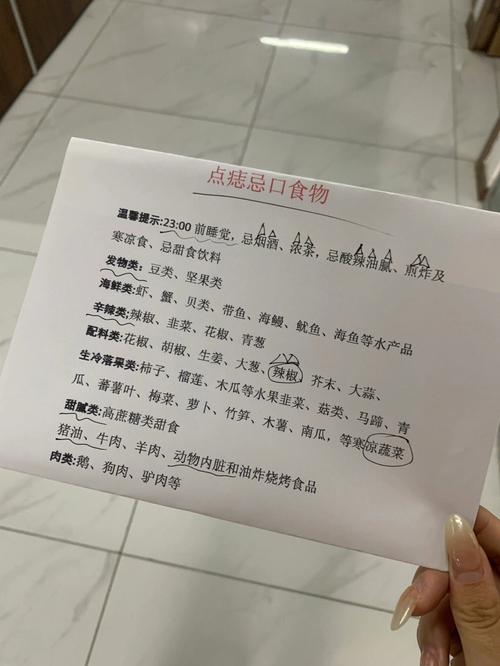 点痣忌口食物
温馨提示:23:00前睡觉，忌烟酒、浓茶，忌酸辣油腻、煎炸及
寒凉食、忌甜食饮料
发物类：豆类、坚果类
海鲜类:虾、蟹、贝类、带鱼、海鳗、鱿鱼、海鱼等水产品
辛辣类;辣椒、韭菜、花椒、青葱
配料类:花椒、胡椒、生姜、大葱、辣椒、芥末、大蒜、
生冷落果类:柿子、榴莲、木瓜等水果韭菜、菇类、马蹄、青
瓜、蕃薯叶、梅菜、萝卜、竹笋、木薯、南瓜，等寒凉蔬菜
甜腻类:高蔗糖类甜食
猪油、牛肉、羊肉、动物内脏和油炸烧烤食品
肉类:鹅、狗肉、驴肉等